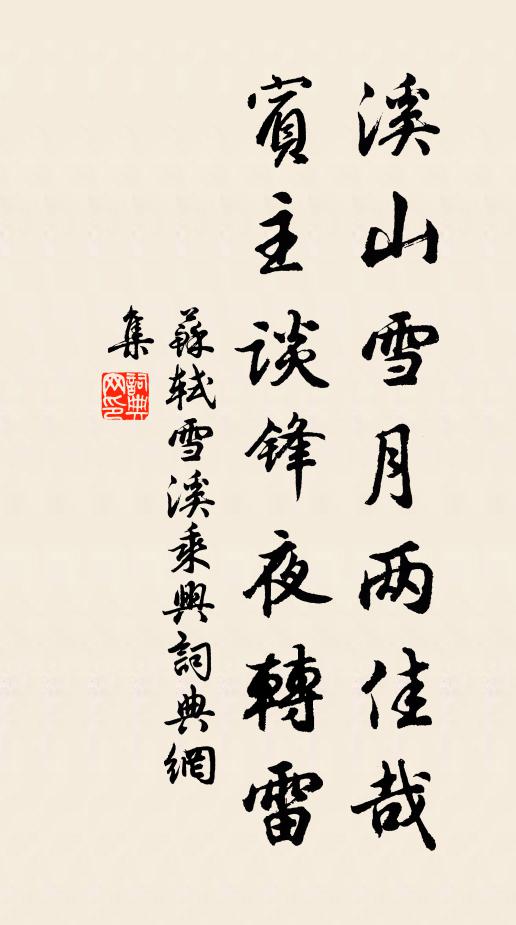 溪山雪月两佳哉
賓主談锋夜轉雷
蘇軾雪溪乘興詞典網
集
詞典
网印